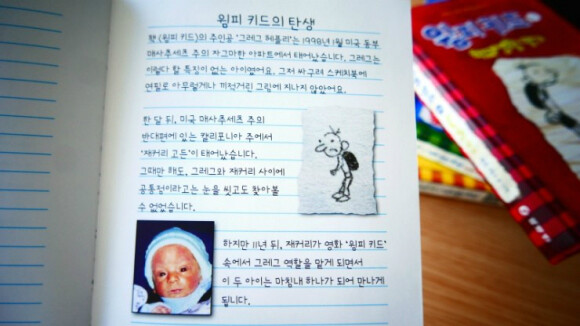 윔피 키드의 탄생
책 〈윔피 키드〉의 주인공 '그레그 헤플리'는 1998년 1월 미국 동부
매사추세츠 주의 자그마한 아파트에서 태어났습니다. 그레그는
이렇다 할 특징이 없는 아이였어요. 그저 싸구려 스케치북에
연필로 아무렇게나 끼적거린 그림에 지나지 않았어요.
한 달 뒤, 미국 매사추세츠 주의
반대편에 있는 캘리포니아 주에서
'재커리 고든'이 태어났습니다.
그때만 해도, 그레그와 재커리 사이에
공통점이라고는 눈을 씻고도 찾아볼
수 없었습니다.
하지만 11년 뒤, 재커리가 영화 '윔피 키드'
속에서 그레그 역할을 맡게 되면서
이 두 아이는 마침내 하나가 되어 만나게
됩니다.
윔피 키드